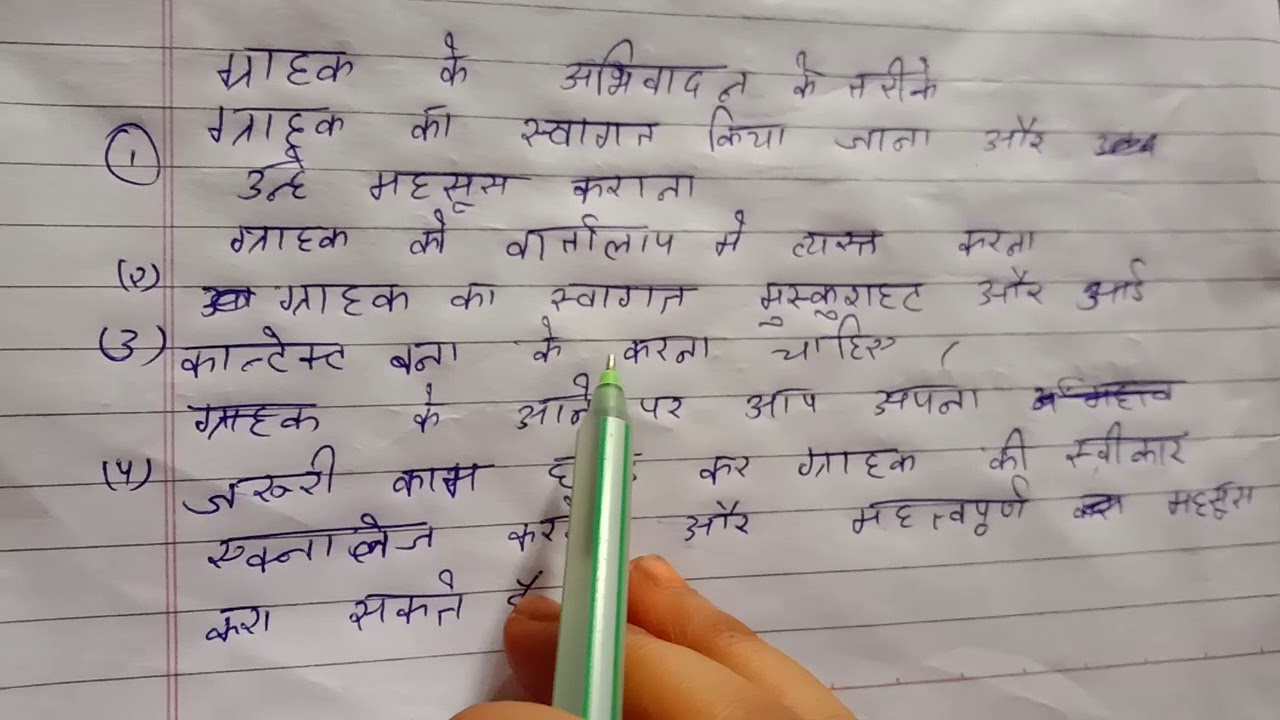 ग्राहक के अभिवादन के तरीके
① ग्राहक का स्वागत किया जाना और
उन्हे महसूस कराना
ग्राहक को वार्तालाप मे व्यस्त करना
(2) ग्राहक का स्वागत मुस्कुराहट और आई
(3) कान्टेक्ट बना के करना चाहिए
ग्राहक के आने पर आप अपना
(4) जरूरी काम कर ग्राहक की स्वीकार
एक्नालेज और महत्वपूर्ण महसूस
करा सकते है